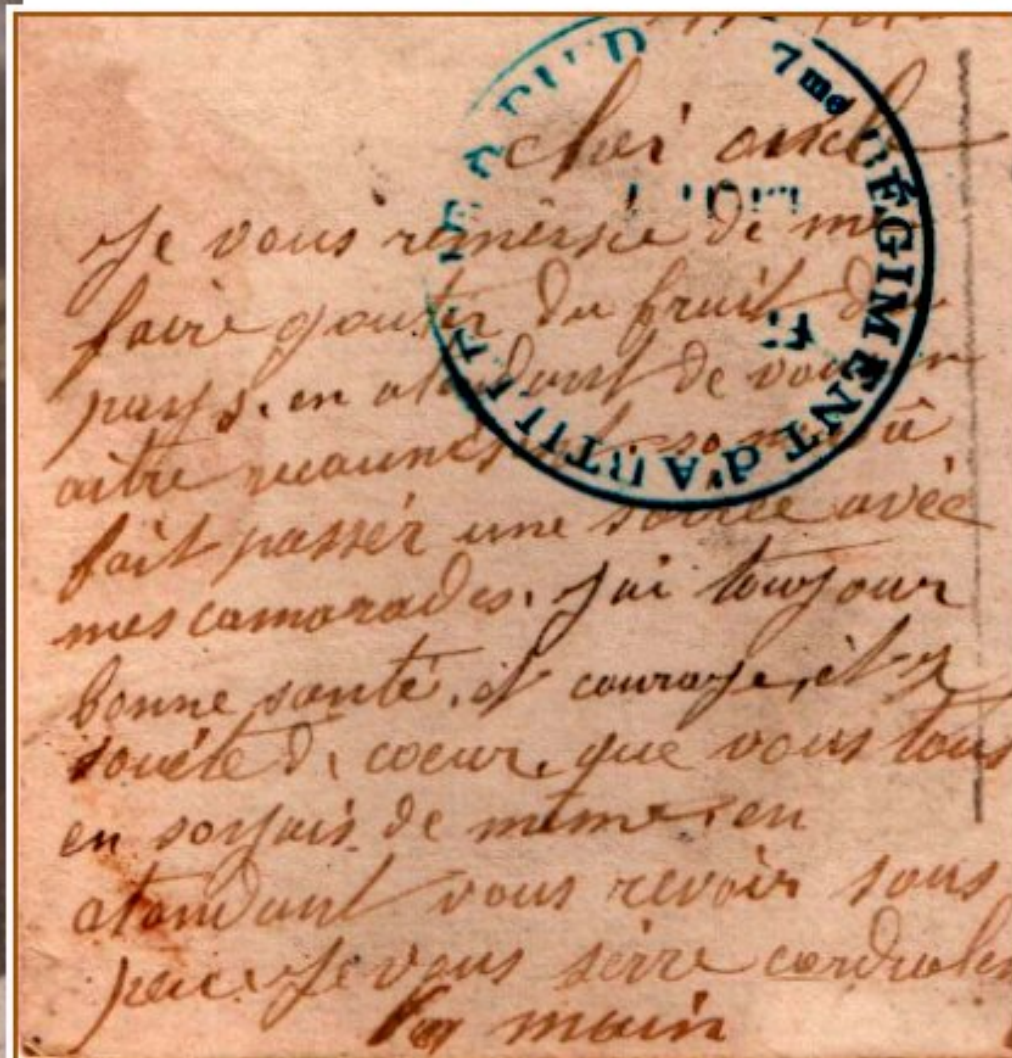 7me RÉGIMENT d'ARTILLERIE À PIED
cher oncle
Je vous remersie de me
faire gouter du fruit du
pays. en atendant de
aitre reaunés
fait passér une soirée avéc
mes camarades. J'ai toujour
bonne santé, et courage, ét
souéte de coeur, que vous tous
en soyiais de même, en
atendant vous revoir sous
peu. Je vous sérre cordialem
la main